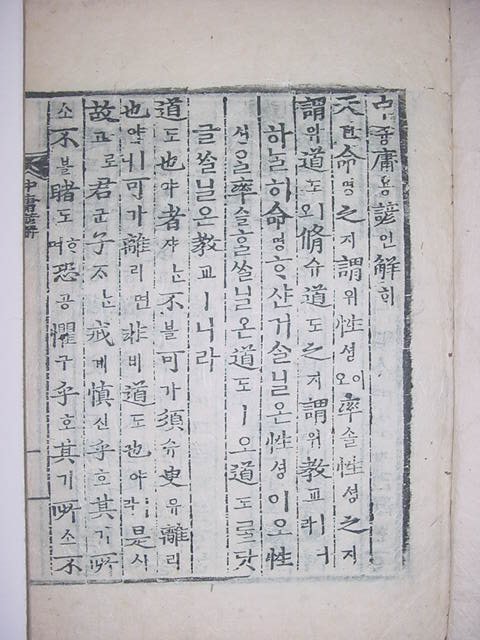 中듕庸용諺언解ᄒᆡ
天텬命명之지謂위性셩이오率솔性셩之지
謂위道도ㅣ오脩슈道도之지謂위敎교ㅣ니라
하ᄂᆞᆯ히命명ᄒᆞ샨거슬닐온性셩이오性
셩을率솔ᄒᆞᆯᄊᆞᆯ닐온道도ㅣ오道도ᄅᆞᆯ닷
글ᄊᆞᆯ닐온敎교ㅣ니라
道도也야者쟈ᄂᆞᆫ不블可가須슈臾유離리
也야ㅣ니可가離리면非비道도也야ㅣ라是시
故고로君군子ᄌᆞᄂᆞᆫ戒계愼신乎호其기所
소不블睹도ᄒᆞ며恐공懼구乎호其기所소不
中庸諺解